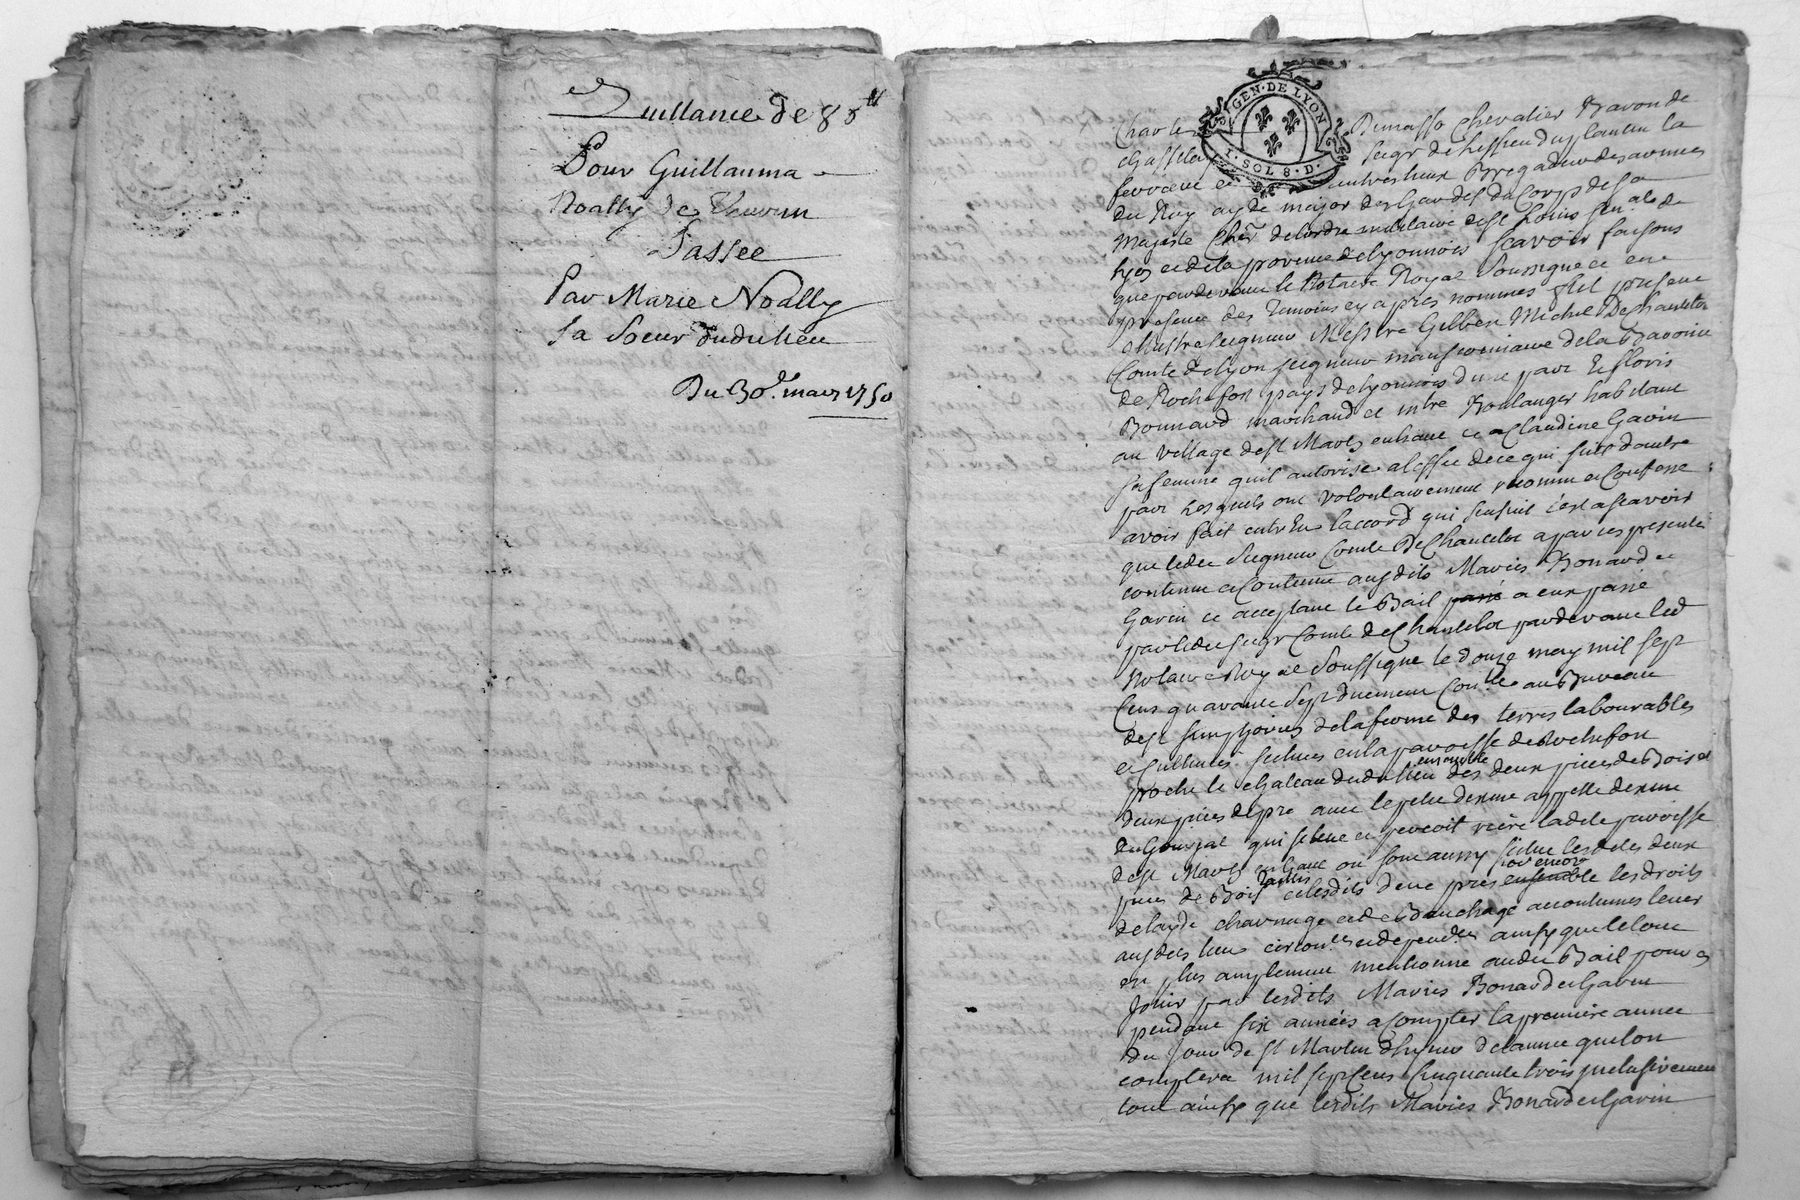 Quittance de 85ᵗᵗ
Pour Guillauma
Noally de
Passee
Par Marie Noally
Sa Soeur dudit lieu
Du 30ᵉ. mars 1750
GEN · DE LYON
1 · SOL 8 · D ·
Charle Dimasso Chevalier Baron de
Chassela Seigr de hessieu du plantin la
ferraeur et autres lieux Brigadier des armées
du Roy ayde major des Gardes du Corps de Sa
Majesté Cher de lordre militaire de St Louis Senale de
lyon et de la province de lyonnois scavoir faisons
que pardevant le Notaire Royal Soussigné et en
presence des Temoins cy apres nommes fut present
illustre Seigneur Messire Gilbert Michel De Chantelot
Comte de lyon seigneur mansionnaire de la Baronie
de Rochefort pays de lyonnois d'une part Et floris
Bonnard marchand et mtre Boulanger habitant
au village de St Marcel en haut et Claudine Gavin
sa femme quil autorise a leffet de ce qui suit dautre
part Lesquels ont volontairement reconnu et Confessé
avoir fait entre Eux laccord qui sensuit c'est a scavoir
que ledit Seigneur Comte De Chantelot a par ces presentes
continue et Continue auxdits Mariés Bonard et
Gavin ce acceptant le Bail passé a eux passé
par ledit seigr Comte de Chantelot pardevant led
Notaire Royal Soussigné le douze may mil sept
Cens quarante Sept duement Conlle au Bureau
de St Simphorien de la ferme des terres labourables
et Cultures scitues en la paroisse de Rochefort
proche le Chateau dudit lieu ensemble des deux pieces de Bois et
deux pieces de pré avec le petit dixme appellé dixme
du qui se leve et percoit riere ladite paroisse
de St Marcel en haut ou sont aussy scitue lesdites deux
pieces de Bois taillis et lesdits deux prés ensemble les droits
de layde charnage et de Bauchage accoutumes lever
auxdits lieux circonces et dependces ainsy que le tout
est plus amplement mentionne audit Bail pour en
Jouir par lesdits Mariés Bonard et Gavin
pendant six années a Compter la premiere annee
du Jour de St Martin d'hyver de l'annee que lon
comptera mil sept Cens Cinquante trois inclusivement
tout ainsy que lesdits Mariés Bonard et Gavin